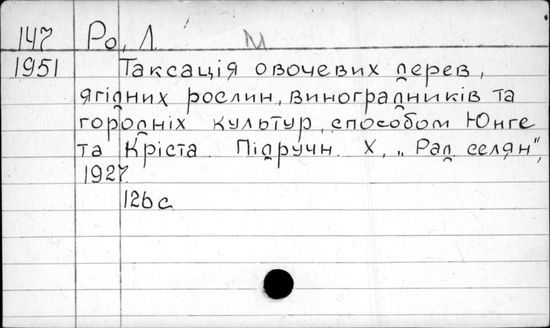 147 Ро, Л. М
1951 Таксація овочевих дерев,
ягідних рослин, виноградників та
городніх культур, способом Юнге
та Кріста. Підручн. Х, „Рад селян",
1927.
126 с